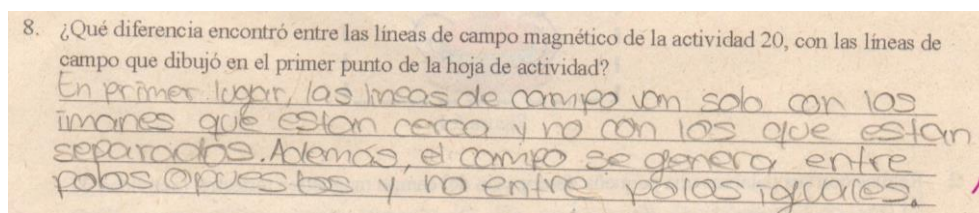 8. ¿Qué diferencia encontró entre las líneas de campo magnético de la actividad 20, con las líneas de
campo que dibujó en el primer punto de la hoja de actividad?
En primer lugar, las lineas de campo van solo con los
imanes que estan cerca y no con los que estan
separados. Además, el campo se genera entre
polos opuestos y no entre polos iguales.